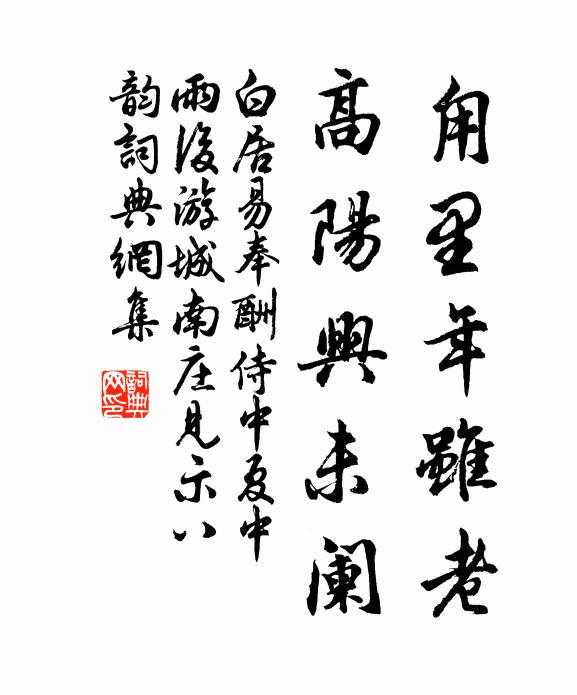 甪里年雖老
高陽興未闌
白居易奉酬侍中夏中
雨後游城南庄見示八
韵詞典網集
詞典
网印